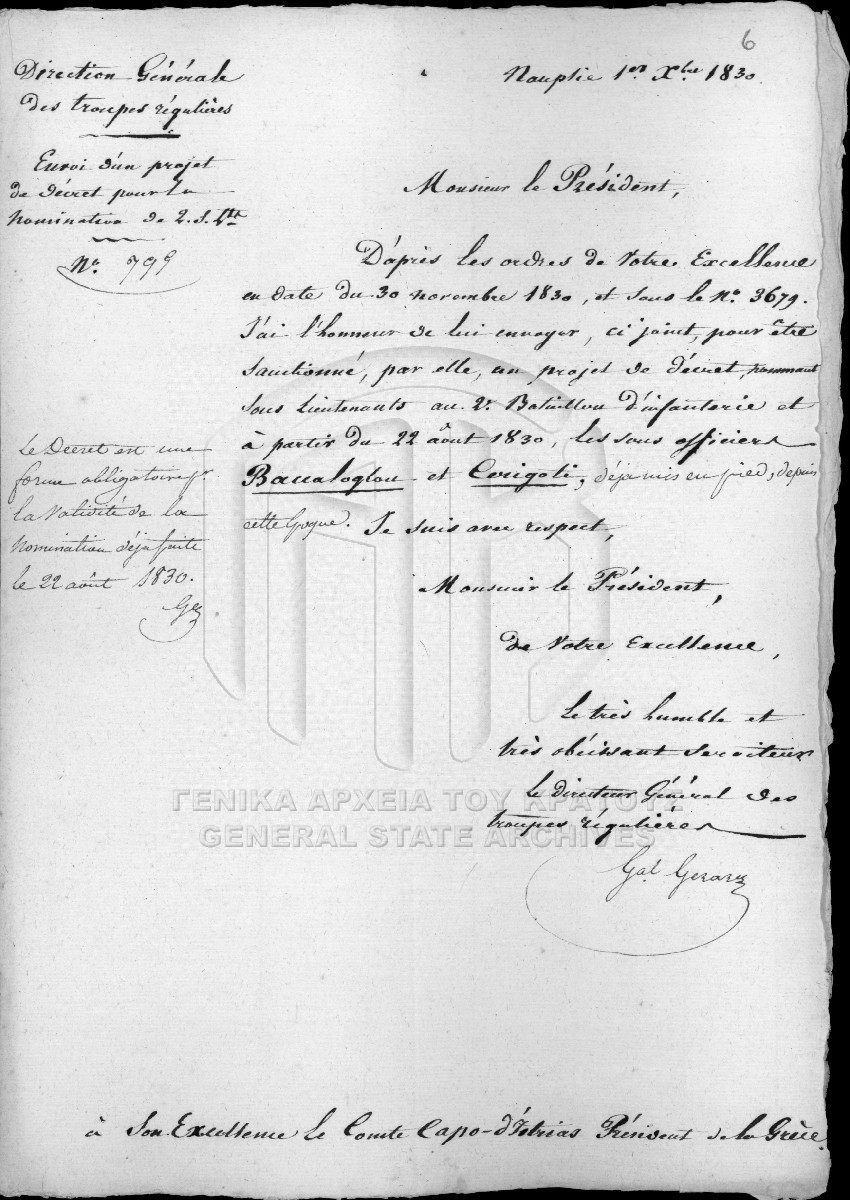 6
Direction Générale
des troupes régulières
Envoi d'un projet
de décret pour la
nomination de 2. S. Ltts
No. 799
Nauplie 1er Xbre 1830.
Monsieur le Président,
D'après les ordres de Votre Excellence
en date du 30 novembre 1830, et sous le No. 3679.
J'ai l'honneur de lui envoyer, ci joint, pour être
sanctionné, par elle, un projet de décret, nommant
sous lieutenants au 2e. Bataillon d'infanterie et
à partir du 22 août 1830, les sous officiers
Bacaloglou et Cerigoti, déjà mis en pied, depuis
cette époque. Je suis avec respect,
Le Décret est une
forme obligatoire pr
la validité de la
nomination déjà faite
le 22 août 1830.
Monsieur le Président,
de Votre Excellence,
Le très humble et
très obéissant serviteur
Le directeur Général des
troupes régulières
Gal Gerard
ΓΕΝΙΚΑ ΑΡΧΕΙΑ ΤΟΥ ΚΡΑΤΟΥΣ
GENERAL STATE ARCHIVES
à Son Excellence le Comte Capo-d'Istrias Président de la Grèce.